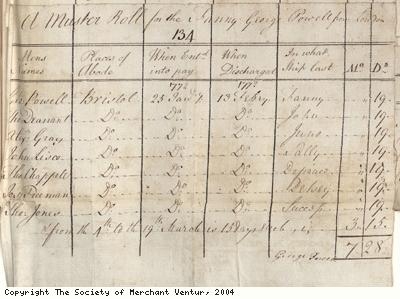 A Muster Roll for the Fanny George Powell from London
134
Mens Names Places of Abode When Entd into pay When Discharged In what Ship last Mo Ds
Powell Bristol 13 Febry Fanny 19
Do Do Do John 19
Alexr Gray Do Do Do Juno 19
John Do Do Do Sally 19
Thos Chappell Do Do Do 19
Freeman Do Do Do Betsey 19
Thos Jones Do Do Do Success 19
from the 4th to the 19th March is 15 Days each 3 15
7 28
George
Copyright The Society of Merchant Ventur, 2004